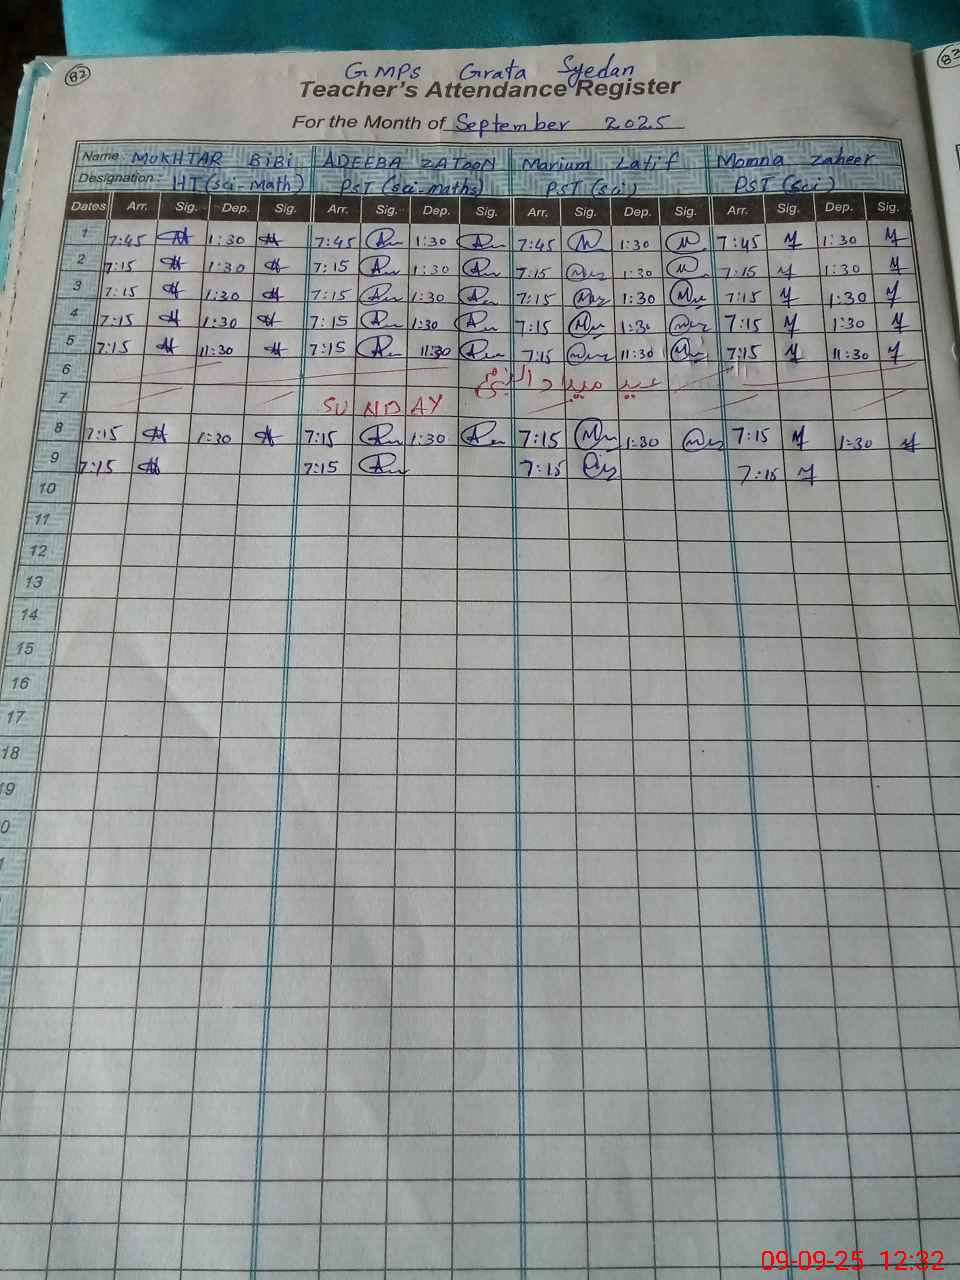 82
83
GMPS Grata Syedan
Teacher's Attendance Register
For the Month of September 2025
Name: MUKHTAR BiBi ADEEBA ZATOON Marium Latif Momna Zaheer
Designation: HT(sci-math) PST (sci-maths) PST (sci) PST (sci)
Dates Arr. Sig. Dep. Sig. Arr. Sig. Dep. Sig. Arr. Sig. Dep. Sig. Arr. Sig. Dep. Sig.
1 7:45 1:30 7:45 1:30 7:45 1:30 7:45 1:30
2 7:15 1:30 7:15 1:30 7:15 1:30 7:15 1:30
3 7:15 1:30 7:15 1:30 7:15 1:30 7:15 1:30
4 7:15 1:30 7:15 1:30 7:15 1:30 7:15 1:30
5 7:15 11:30 7:15 11:30 7:15 11:30 7:15 11:30
6 عید میلاد النبیؐ
7 SUNDAY
8 7:15 1:30 7:15 1:30 7:15 1:30 7:15 1:30
9 7:15 7:15 7:15 7:15
10
11
12
13
14
15
16
17
18
9
0
1
09-09-25 12:32